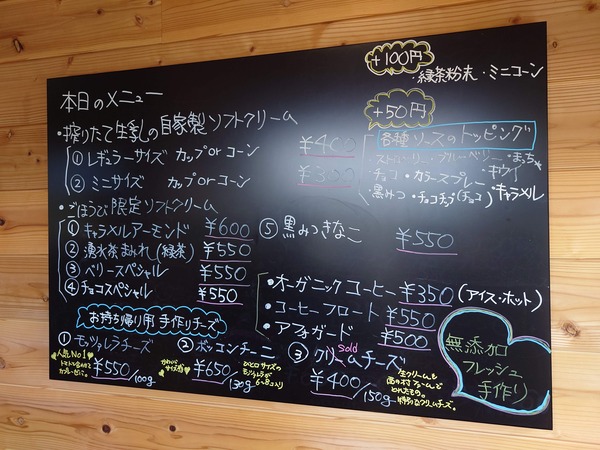 本日のメニュー
・搾りたて生乳の自家製ソフトクリーム
① レギュラーサイズ カップorコーン ¥400
② ミニサイズ カップorコーン ¥300
・ごほうび限定ソフトクリーム
① キャラメルアーモンド ¥600
② 湧水茶まみれ(緑茶) ¥550
③ ベリースペシャル ¥550
④ チョコスペシャル ¥550
⑤ 黒みつきなこ ¥550
+100円
・緑茶粉末・ミニコーン
+50円
各種ソースのトッピング
ストロベリー・ブルーベリー・まっちゃ
チョコ・カラースプレー・キウイ
黒みつ・チョコチップ(チョコ)キャラメル
・オーガニックコーヒー ¥350 (アイス・ホット)
・コーヒーフロート ¥550
・アフォガード ¥500
お持ち帰り用 手作りチーズ
① モッツァレラチーズ
人気No1
¥550/100g
② ボッコンチーニ
¥650/130g
ひと口サイズの
③ クリームチーズ
sold
¥400/150g
無添加
フレッシュ
手作り